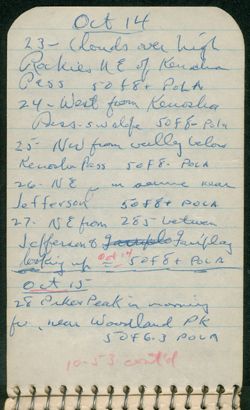 Oct 14
23 - Clouds over high
Rockies NE of Kenosha
Pass 50 F8+ POLA
24 - West from Kenosha
Pass - 50 F8 - Pola
25 - NW from valley below
Kenosha Pass 50 F8 - POLA
26 - NE in same near
Jefferson 50 F8+ POLA
27 - NE from 285 between
Jefferson & Fairplay
looking up Oct 14 50 F8+ POLA
Oct 15
28 Pikes Peak in morning
near Woodland Pk
50 F 6.3 POLA
10-53 cont'd